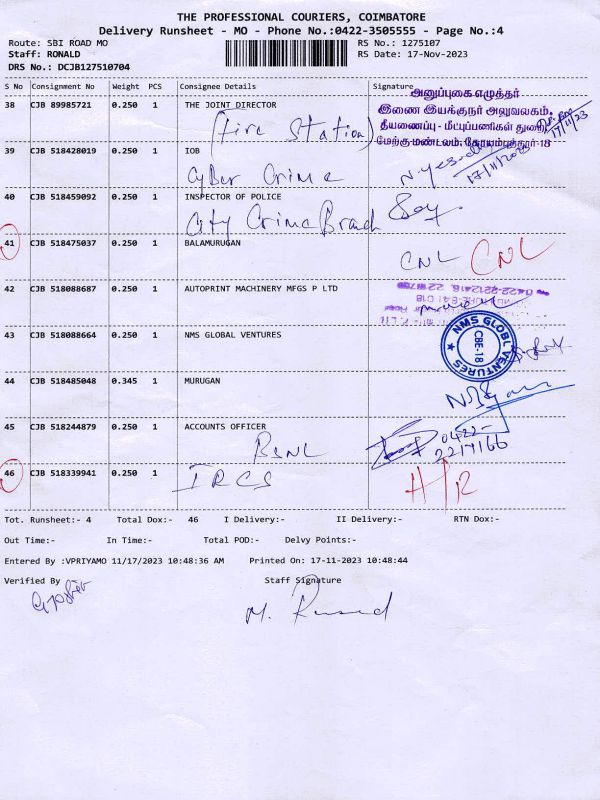 THE PROFESSIONAL COURIERS, COIMBATORE
Delivery Runsheet - MO - Phone No.:0422-3505555 - Page No.:4
Route: SBI ROAD MO RS No.: 1275107
Staff: RONALD RS Date: 17-Nov-2023
DRS No.: DCJB127510704
S No Consignment No Weight PCS Consignee Details Signature
அனுப்புகை எழுத்தர்
38 CJB 89985721 0.250 1 THE JOINT DIRECTOR இணை இயக்குநர் அலுவலகம்,
(Fire Station) தீயணைப்பு - மீட்புப்பணிகள் துறை, 17/11/23
மேற்கு மண்டலம், கோயம்புத்தூர்-18
39 CJB 518428019 0.250 1 IOB
Cyber Crime 17/11/2023
40 CJB 518459092 0.250 1 INSPECTOR OF POLICE
City Crime Branch
41 CJB 518475037 0.250 1 BALAMURUGAN
CNL CNL
42 CJB 518088687 0.250 1 AUTOPRINT MACHINERY MFGS P LTD
43 CJB 518088664 0.250 1 NMS GLOBAL VENTURES
NMS GLOBL VENTURES
CBE-18
44 CJB 518485048 0.345 1 MURUGAN
45 CJB 518244879 0.250 1 ACCOUNTS OFFICER
BSNL 0422-
2217166
46 CJB 518339941 0.250 1 IRCS
Tot. Runsheet:- 4 Total Dox:- 46 I Delivery:- II Delivery:- RTN Dox:-
Out Time:- In Time:- Total POD:- Delvy Points:-
Entered By :VPRIYAMO 11/17/2023 10:48:36 AM Printed On: 17-11-2023 10:48:44
Verified By Staff Signature